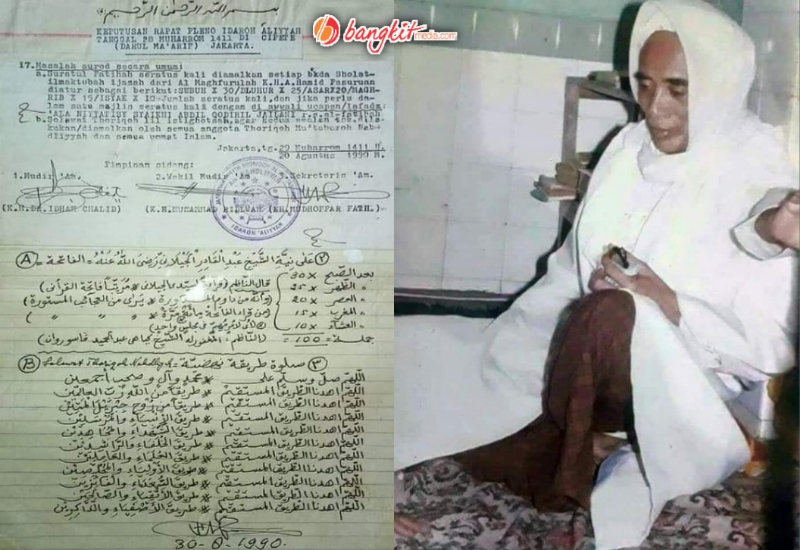 بسم الله الرحمن الرحيم
bangkit
media.com
KEPUTUSAN RAPAT PLENO IDAROH ALIYYAH
TANGGAL 28 MUHARROM 1411 DI CIPETE
(DARUL MA'ARIF) JAKARTA.
17. Masalah aurod secara umum:
a. Suratul Fatihah seratus kali diamalkan setiap bakda Sholat-
ilmaktobah ijazah dari Al Maghfurlah K.H.A.Hamid Pasuruan
diatur sebagai berikut: SUBUH X 30/DLUHUR X 25/ASAR/20/MAGH-
RIB X 15/ISYAK X 10-Jumlah seratus kali, dan jika perlu da-
lam satu majlis seratus kali dengan di awali ucapan/lafadz:
ALA NIYYATISY SYAIKHI ABDIL QODIRIL JAILANI r.a.al-fatihah
b. Solawat Thoriqoh
kukan/diamalkan oleh semua anggota Thoriqoh Mu'tabaroh Nah-
dliyyah dan semua ummat Islam.
Jakarta, tgl. 29 Muharrom 1411 H.
20 Agustus 1990 M.
Pimpinan sidang:
1. Mudir 'Am. 2. Wakil Mudir 'Am 3. Sekretaris 'Am.
(K.H.DR.IDHAM CHALID) (K.H. MUHAMMAD RIDLWAN) (DR.MUDHOFFAR FATH.)-
IDAROH 'ALIYYAH
A ٢) على نية الشيخ عبد القادر الجيلاني رضي الله عنه = الفاتحة =
بعد الصبح ٣٠ ×
" الظهر ٢٥ ×
" العصر ٢٠ ×
" المغرب ١٥ ×
" العشاء ١٠ ×
جملة = ١٠٠ ==
B Solawat Thoriqoh Nahdliyyah = صلوة طريقة نهضية ٣)
اللهم صل وسلم على * محمد وآل وصحب أجمعين
اللهم اهدنا الطريق المستقيم * طريقا من الله رب العالمين
اللهم اهدنا الطريق المستقيم * طريقا من روح جبريل الأمين
اللهم اهدنا الطريق المستقيم * طريق الأنبياء والمرسلين
اللهم اهدنا الطريق المستقيم * طريق الشهداء والمجاهدين
اللهم اهدنا الطريق المستقيم * طريق الخلفاء والراشدين
اللهم اهدنا الطريق المستقيم * طريق العلماء والعاملين
اللهم اهدنا الطريق المستقيم * طريق الأولياء والمخلصين
اللهم اهدنا الطريق المستقيم * طريق السعداء والفائزين
اللهم اهدنا الطريق المستقيم * طريق الأتقياء والصالحين
اللهم اهدنا الطريق المستقيم * طريق الأصفياء والذاكرين
30-8-1990.